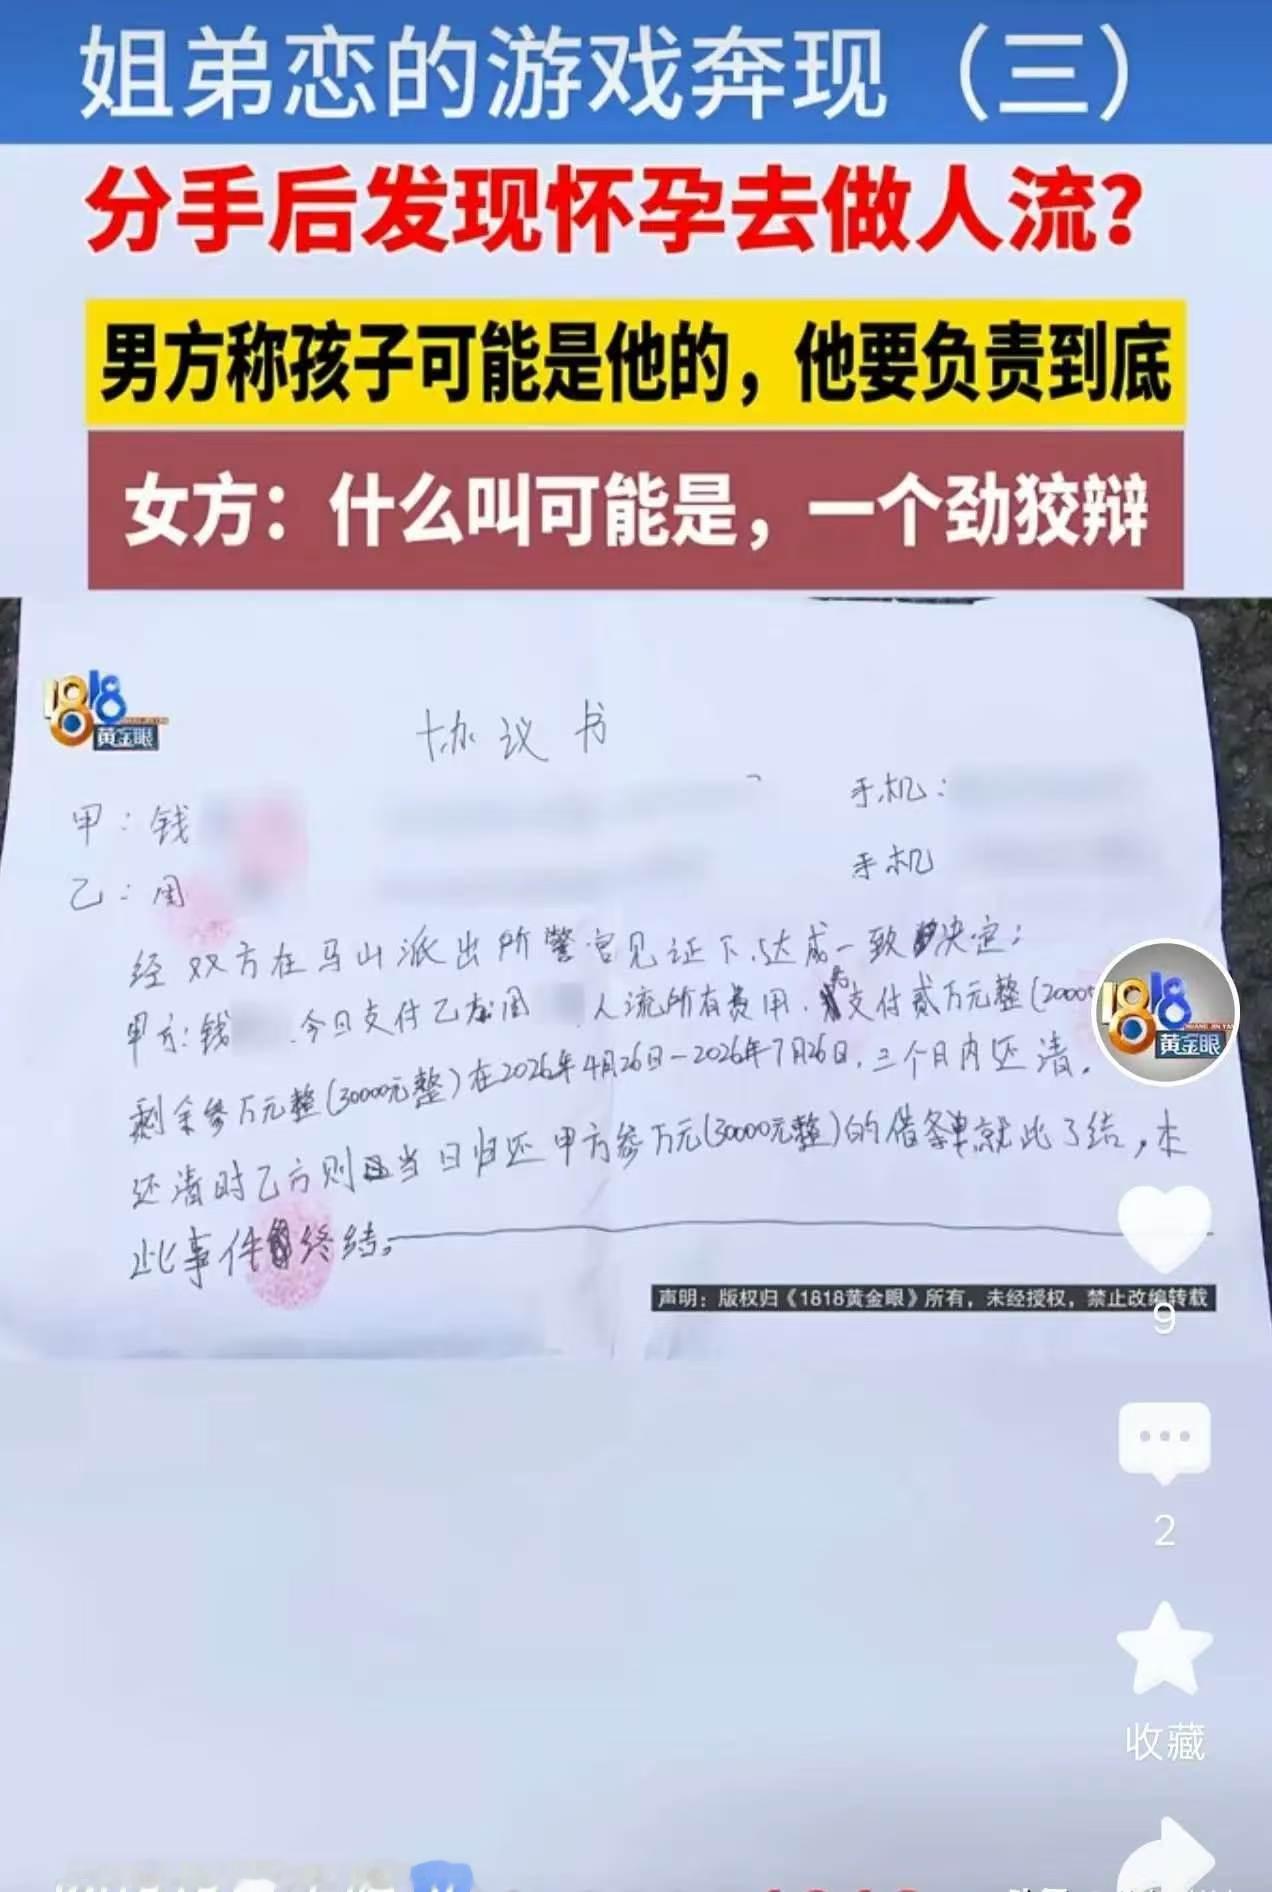 姐弟恋的游戏奔现（三）
分手后发现怀孕去做人流？
男方称孩子可能是他的，他要负责到底
女方：什么叫可能是，一个劲狡辩
1818
黄金眼
协议书
甲：钱
手机：
乙：周
手机
经双方在马山派出所警官见证下，达成一致决定：
甲方：钱 今日支付乙方周 人流所有费用，先支付贰万元整(20000
剩余叁万元整(30000元整)在2026年4月26日—2026年7月26日，三个月内还清。
还清时乙方则当日归还甲方叁万元(30000元整)的借条单就此了结，本
此事件终结。
1818
HUANG JIN YAN
黄金眼
声明：版权归《1818黄金眼》所有，未经授权，禁止改编转载
9
2
收藏